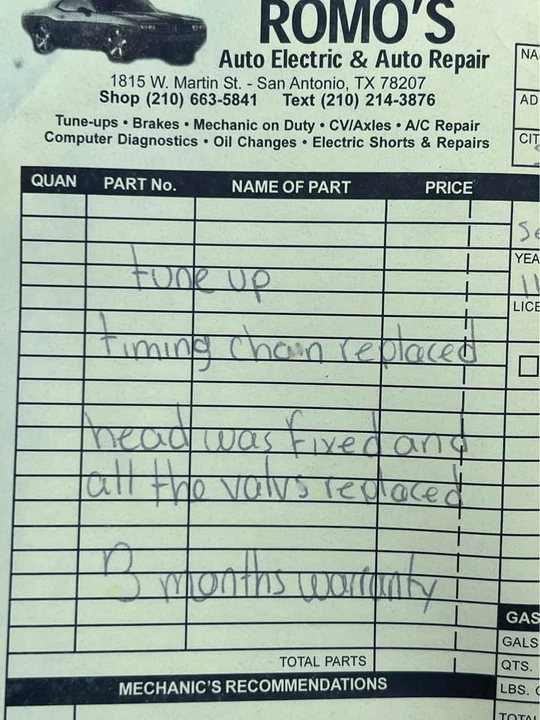 ROMO'S
Auto Electric & Auto Repair
1815 W. Martin St. - San Antonio, TX 78207
Shop (210) 663-5841 Text (210) 214-3876
Tune-ups • Brakes • Mechanic on Duty • CV/Axles • A/C Repair
Computer Diagnostics • Oil Changes • Electric Shorts & Repairs
NA
AD
CIT
QUAN PART No. NAME OF PART PRICE
Se
YEA
11
LICE
tune up
timing chain replaced
head was fixed and
all the valvs replaced
3 months warranty
GAS
GALS
TOTAL PARTS
QTS.
MECHANIC'S RECOMMENDATIONS
LBS.
TOTAL